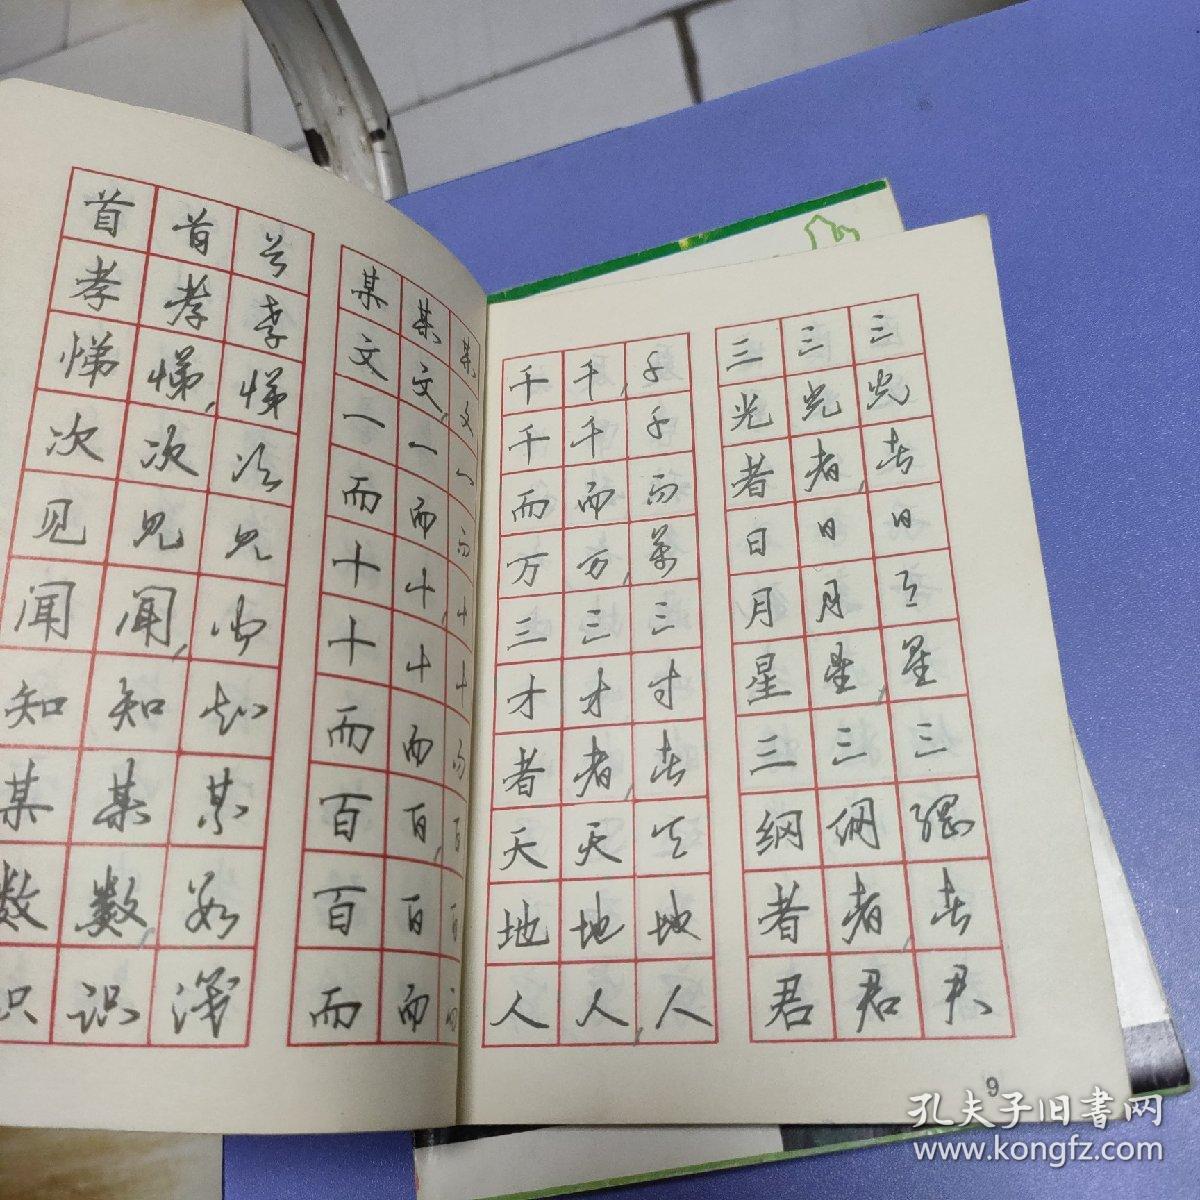 首孝悌次见闻知某数识
首孝悌次见闻知某数识
首孝悌次见闻知某数识
某文一而十十而百百而
某文一而十十而百百而
某文一而十十而百百而
千千而万三才者天地人
千千而万三才者天地人
千千而萬三才者天地人
三光者日月星三纲者君
三光者日月星三纲者君
三光者日月星三綱者君
9
孔夫子旧書网
www.kongfz.com